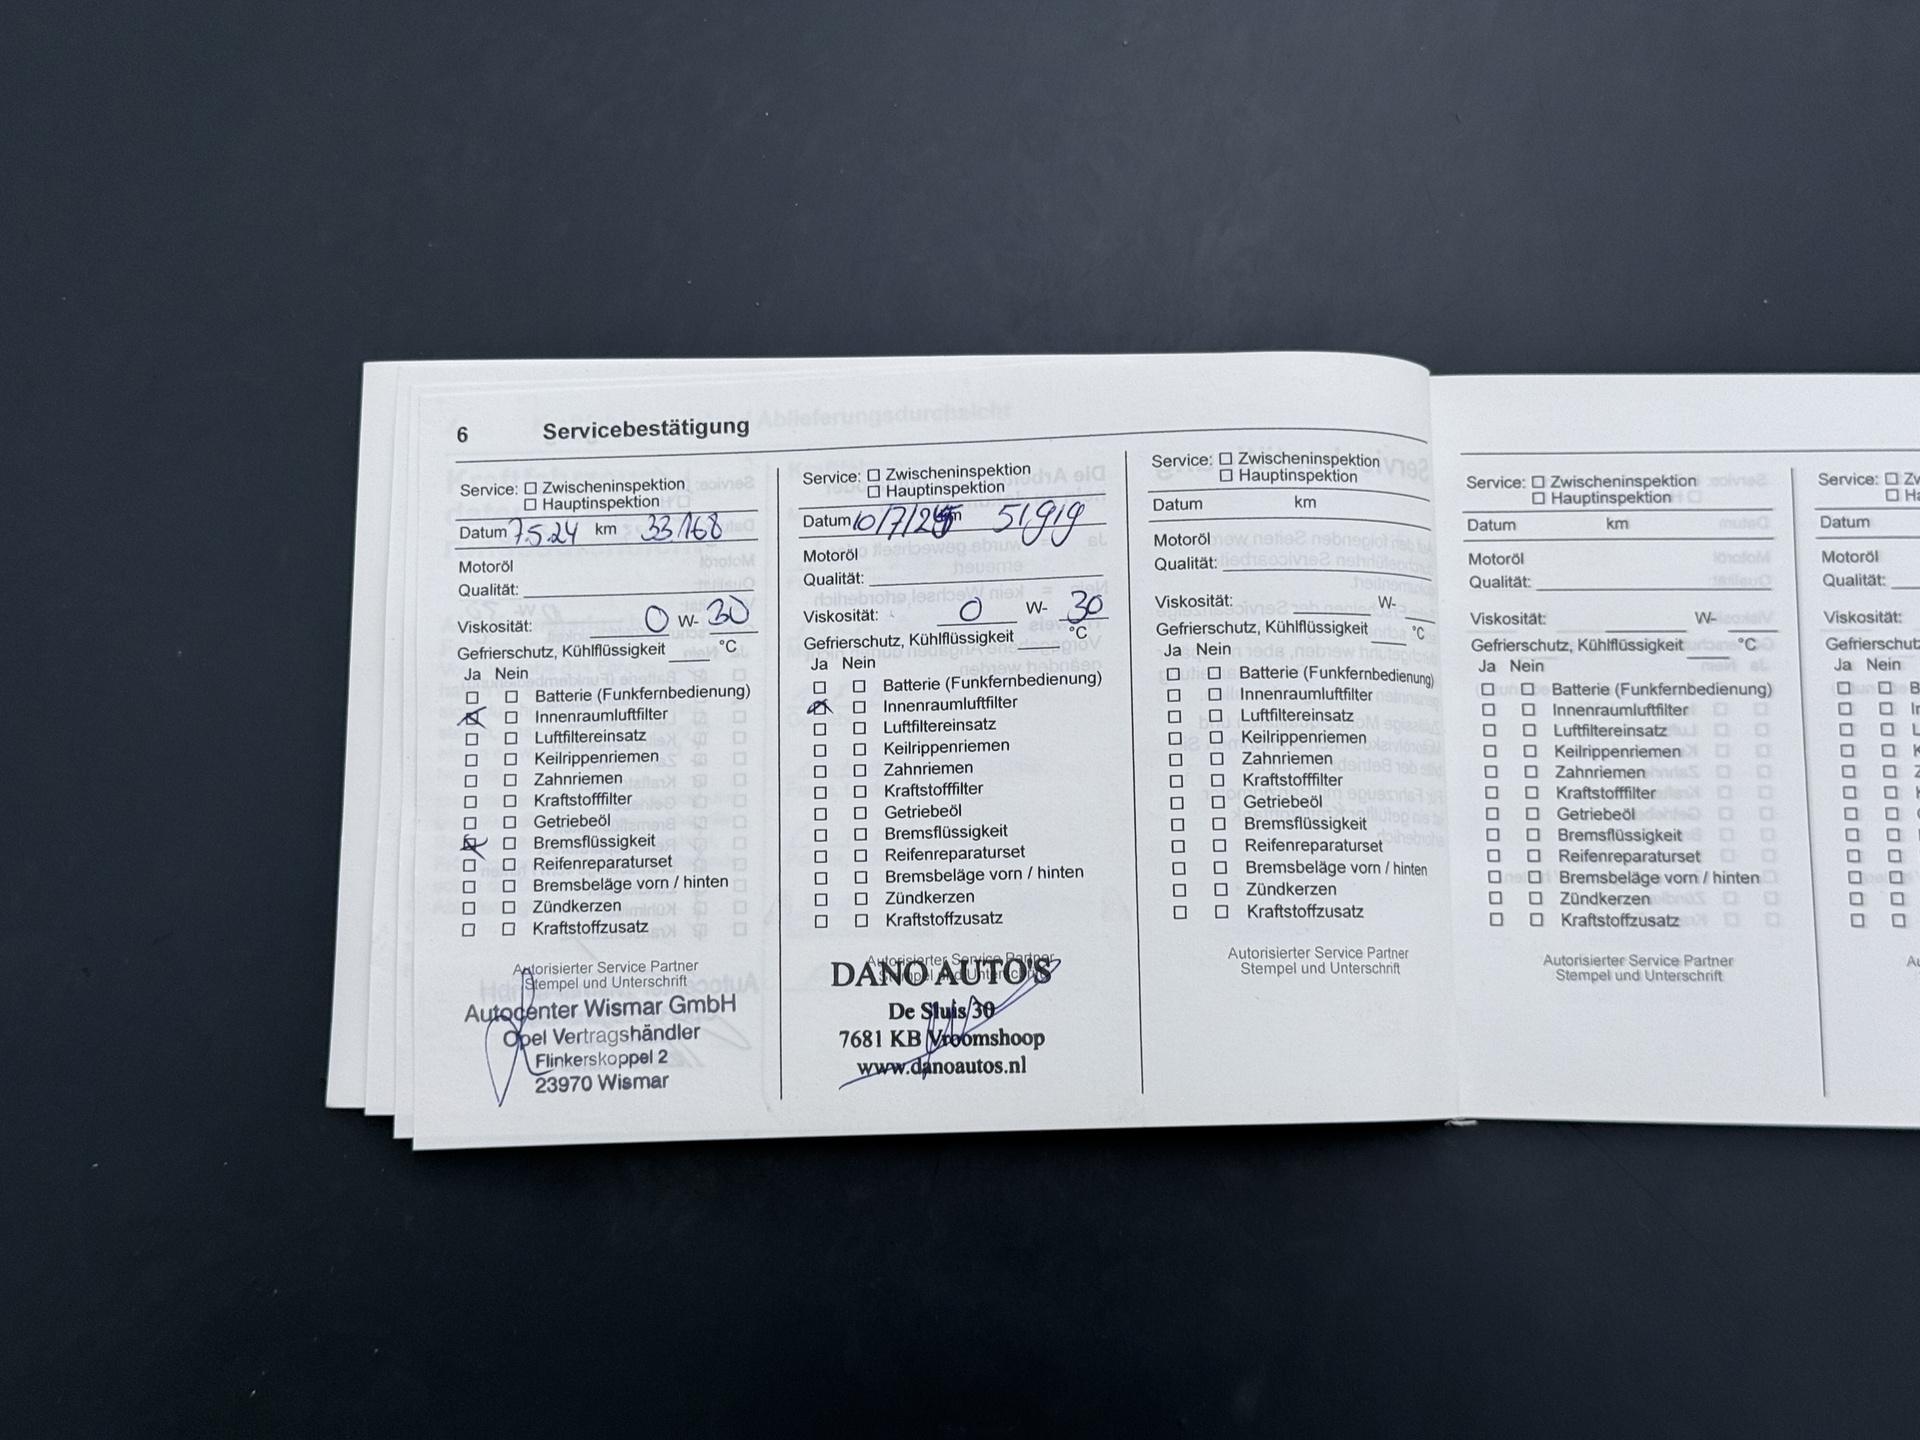 6 Servicebestätigung
Service: Zwischeninspektion
Hauptinspektion
Datum 7.5.24 km 33.168
Motoröl
Qualität:
Viskosität: 0 W- 30
Gefrierschutz, Kühlflüssigkeit °C
Ja Nein
Batterie (Funkfernbedienung)
Innenraumluftfilter
Luftfiltereinsatz
Keilrippenriemen
Zahnriemen
Kraftstofffilter
Getriebeöl
Bremsflüssigkeit
Reifenreparaturset
Bremsbeläge vorn / hinten
Zündkerzen
Kraftstoffzusatz
Autorisierter Service Partner
Stempel und Unterschrift
Autocenter Wismar GmbH
Opel Vertragshändler
Flinkerskoppel 2
23970 Wismar
Service: Zwischeninspektion
Hauptinspektion
Datum 10/7/25 km 51919
Motoröl
Qualität:
Viskosität: 0 W- 30
Gefrierschutz, Kühlflüssigkeit °C
Ja Nein
Batterie (Funkfernbedienung)
Innenraumluftfilter
Luftfiltereinsatz
Keilrippenriemen
Zahnriemen
Kraftstofffilter
Getriebeöl
Bremsflüssigkeit
Reifenreparaturset
Bremsbeläge vorn / hinten
Zündkerzen
Kraftstoffzusatz
Autorisierter Service Partner
Stempel und Unterschrift
DANO AUTO'S
De Sluis 30
7681 KB Vroomshoop
www.danoautos.nl
Service: Zwischeninspektion
Hauptinspektion
Datum km
Motoröl
Qualität:
Viskosität: W-
Gefrierschutz, Kühlflüssigkeit °C
Ja Nein
Batterie (Funkfernbedienung)
Innenraumluftfilter
Luftfiltereinsatz
Keilrippenriemen
Zahnriemen
Kraftstofffilter
Getriebeöl
Bremsflüssigkeit
Reifenreparaturset
Bremsbeläge vorn / hinten
Zündkerzen
Kraftstoffzusatz
Autorisierter Service Partner
Stempel und Unterschrift
Service: Zwischeninspektion
Hauptinspektion
Datum km
Motoröl
Qualität:
Viskosität: W-
Gefrierschutz, Kühlflüssigkeit °C
Ja Nein
Batterie (Funkfernbedienung)
Innenraumluftfilter
Luftfiltereinsatz
Keilrippenriemen
Zahnriemen
Kraftstofffilter
Getriebeöl
Bremsflüssigkeit
Reifenreparaturset
Bremsbeläge vorn / hinten
Zündkerzen
Kraftstoffzusatz
Autorisierter Service Partner
Stempel und Unterschrift
Service:
Datum
Motoröl
Qualität:
Viskosität:
Ja Nein